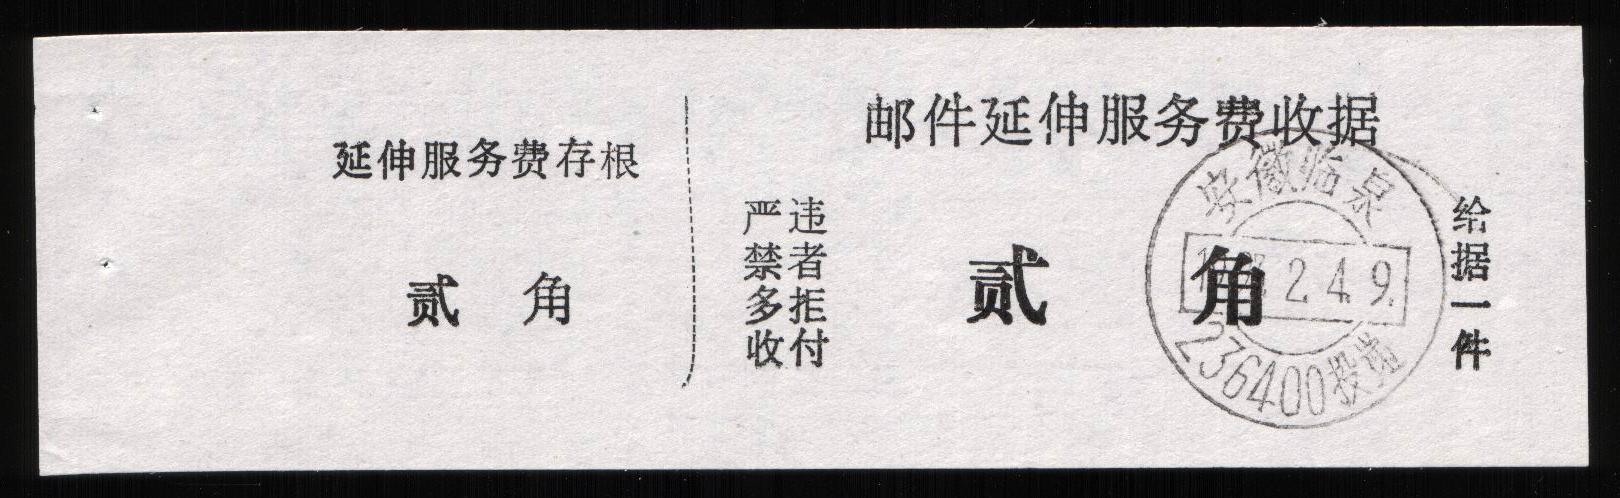 延伸服务费存根
贰 角
邮件延伸服务费收据
严禁多收
违者拒付
贰 角
给据一件
安徽临泉
2.4.9.
236400投